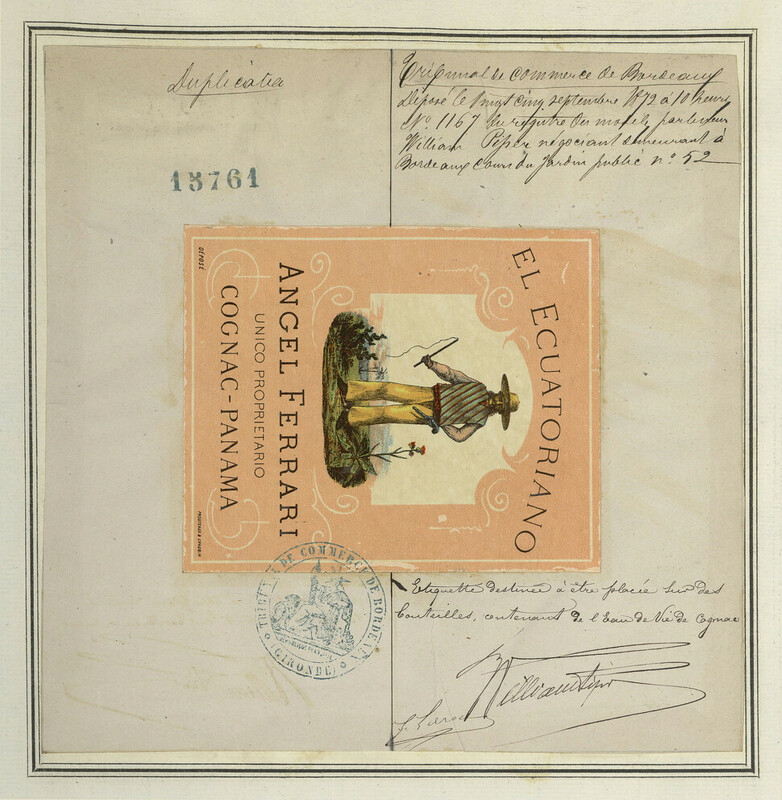 Duplicata
15761
Tribunal de Commerce de Bordeaux
Déposé le vingt cinq septembre 1872 à 10 heures
N° 1167 du registre du modèle, par le sieur
William Pépin négociant demeurant à
Bordeaux Cours du Jardin public n° 52
EL ECUATORIANO
ANGEL FERRARI
UNICO PROPRIETARIO
COGNAC-PANAMA
DÉPOSÉ
TRIBUNAL DE COMMERCE DE BORDEAUX
(GIRONDE)
Etiquette destinée à être placée sur des
bouteilles, contenant de l'Eau de Vie de Cognac